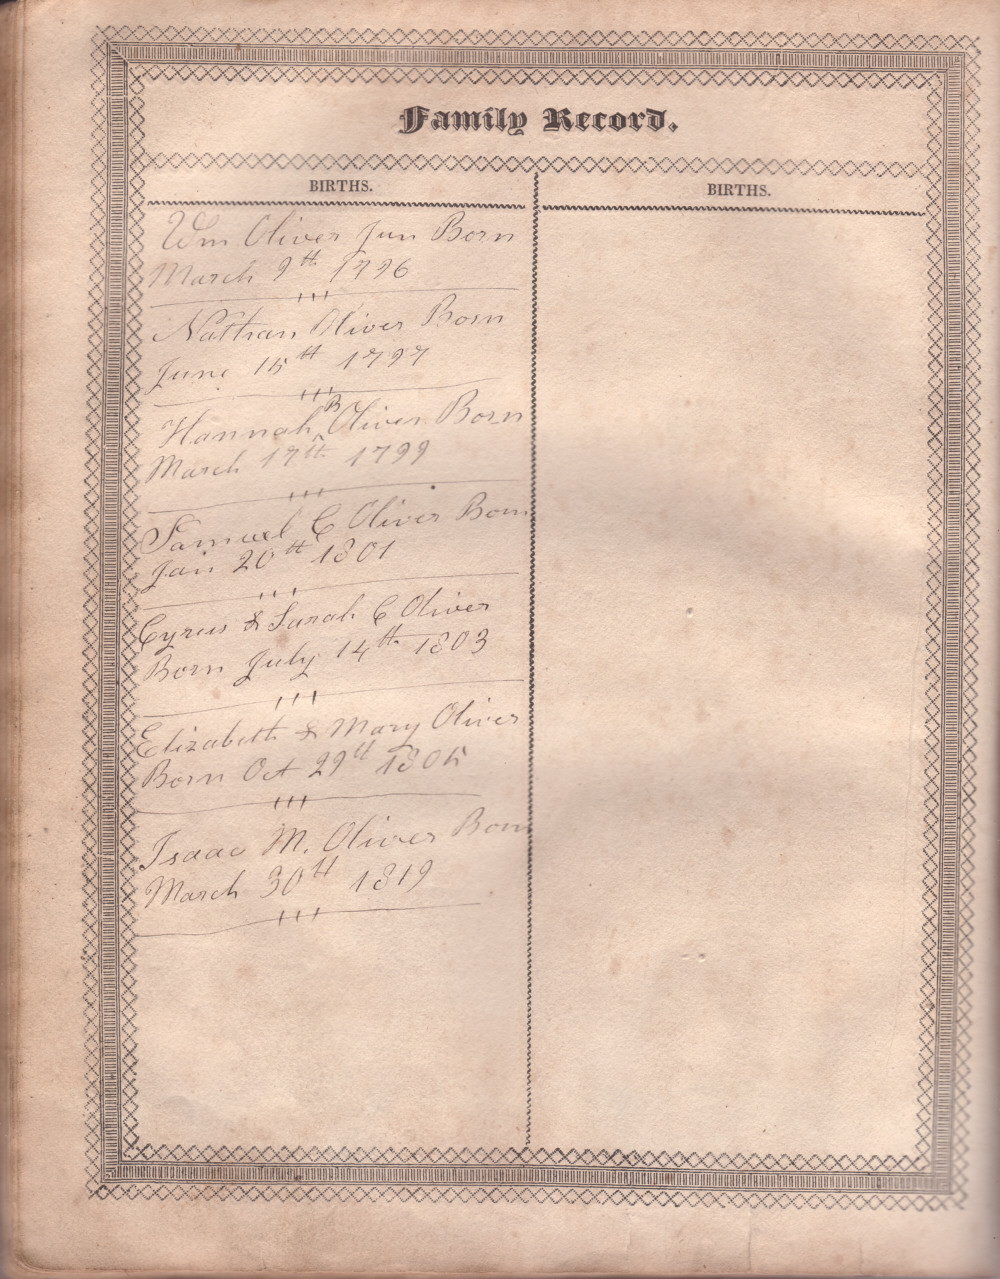 Family Record.
BIRTHS.
Wm Oliver Jun Born
March 9th 1796
Nathan Oliver Born
June 15th 1797
Hannah B Oliver Born
March 17th 1799
Samuel C Oliver Born
Jan 20th 1801
Cyrus & Sarah C Oliver
Born July 14th 1803
Elizabeth & Mary Oliver
Born Oct 29th 1805
Isaac M. Oliver Born
March 30th 1819
BIRTHS.